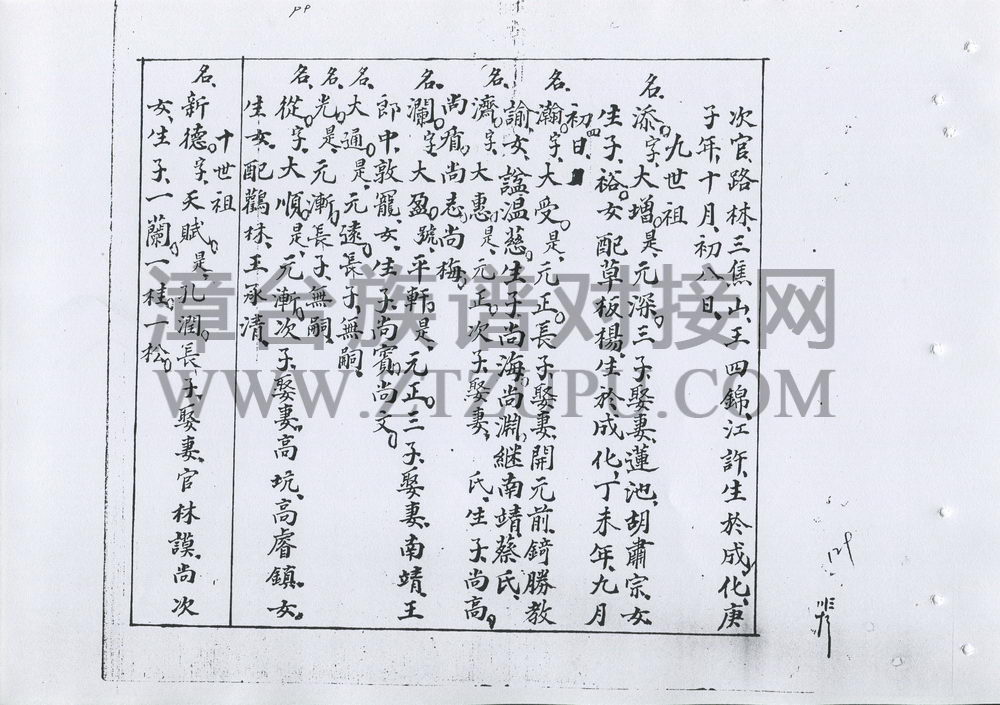 次官路林、三焦山、王四錦、江許、生於成化、庚
子年、十月、初八日、
九世祖
名、添。字、大增。是、元深。三子、娶妻、蓮池、胡肅宗、女
生子、裕。女、配草板楊、生於成化、丁未年、九月
初四日、
名、瀚。字、大受。是、元正。長子、娶妻、開元前、錡勝教
諭、女、諡温慈。生子尚海。尚淵。継南靖蔡氏、
名、濟。字、大惠。是、元正。次子、娶妻、氏、生子、尚高。
尚質。尚志。尚梅。
名、瀾。字、大盈。號、平軒。是、元正。三子、娶妻、南靖、王
郎中、敦寵、女、生子、尚賓。尚文。
名、大通。是、元遠。長子、無嗣、
名、光。是、元漸。長子、無嗣、
名、從。字、大順。是、元漸。次子、娶妻、高坑、高睿鎮、女。
生女、配鸛林、王承清、
十世祖
名、新德。字、天賦。是、孔潤。長子、娶妻、官林謨、尚次
女、生子、一蘭。一桂。一松。
漳台族谱对接网
WWW.ZTZUPU.COM